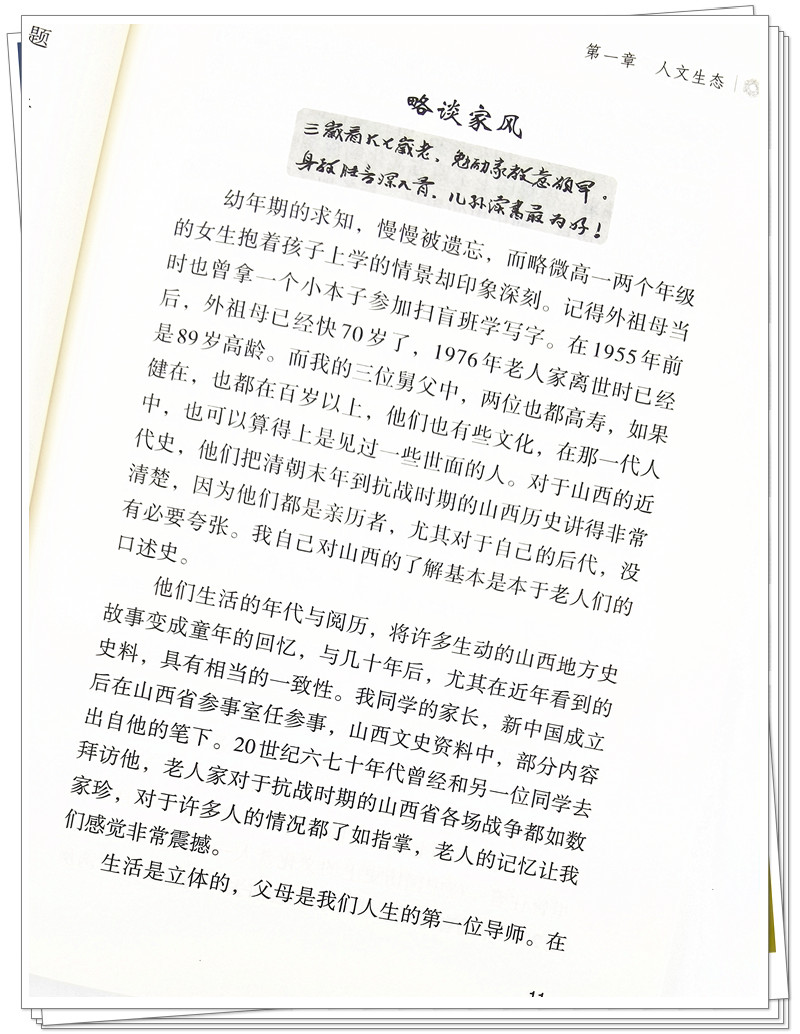 题
第一章 人文生态
略谈家风
三岁看大七岁老，勉励家教意颇早。
身教胜言深入骨，儿孙读书最为好！
幼年期的求知，慢慢被遗忘，而略微高一两个年级
的女生抱着孩子上学的情景却印象深刻。记得外祖母当
时也曾拿一个小本子参加扫盲班学写字。在1955年前
后，外祖母已经快70岁了，1976年老人家离世时已经
是89岁高龄。而我的三位舅父中，两位也都高寿，如果
健在，也都在百岁以上，他们也有些文化，在那一代人
中，也可以算得上是见过一些世面的人。对于山西的近
代史，他们把清朝末年到抗战时期的山西历史讲得非常
清楚，因为他们都是亲历者，尤其对于自己的后代，没
有必要夸张。我自己对山西的了解基本是本于老人们的
口述史。
他们生活的年代与阅历，将许多生动的山西地方史
故事变成童年的回忆，与几十年后，尤其在近年看到的
史料，具有相当的一致性。我同学的家长，新中国成立
后在山西省参事室任参事，山西文史资料中，部分内容
出自他的笔下。20世纪六七十年代曾经和另一位同学去
拜访他，老人家对于抗战时期的山西省各场战争都如数
家珍，对于许多人的情况都了如指掌，老人的记忆让我
们感觉非常震撼。
生活是立体的，父母是我们人生的第一位导师。在
11